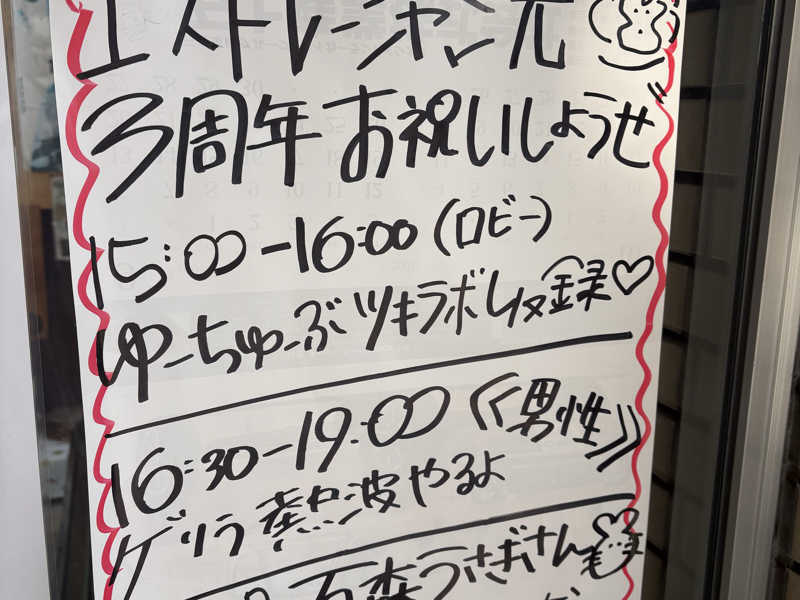 エストレージャン元
3周年お祝いしようぜ
15:00-16:00(ロビー)
ゆーちゅーぶツキラボし収録♡
16:30-19:00《男性》
ゲリラ熱波やるよ
石森うさぎさん